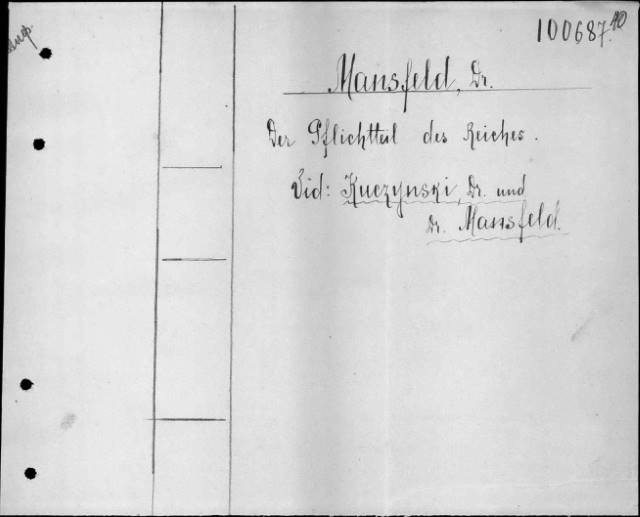 100687.40
Mansfeld, Dr.
Der Pflichtteil des Reiches.
Vid: Kuczynski, Dr. und
Dr. Mansfeld.